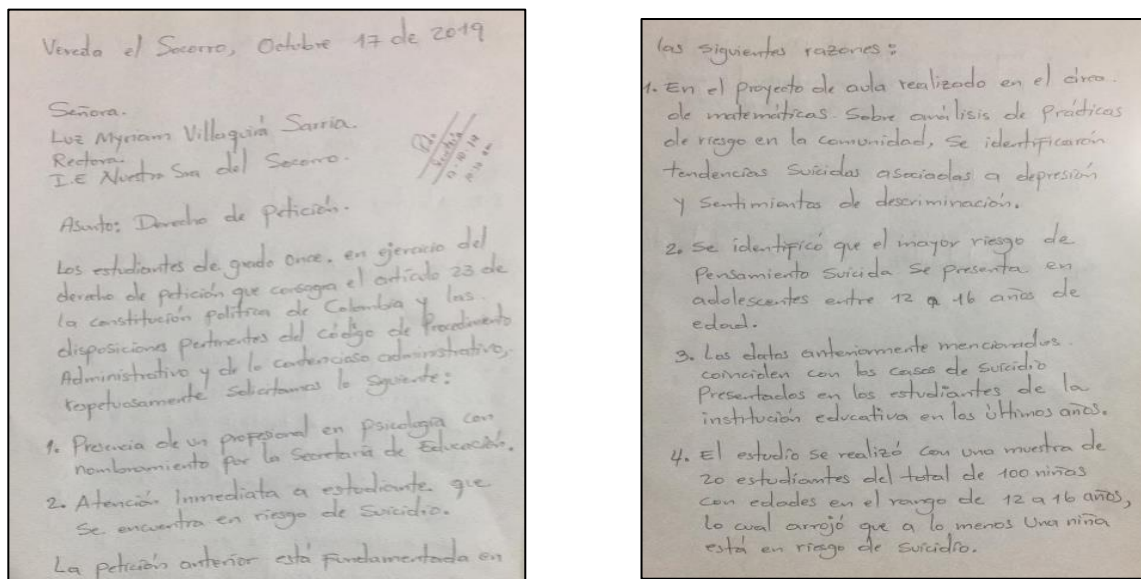 Vereda el Socorro, Octubre 17 de 2019
Señora.
Luz Myriam Villaquirá Sarria.
Rectora.
I.E Nuestra Sra del Socorro.
Asunto: Derecho de petición.
Los estudiantes de grado once, en ejercicio del
derecho de petición que consagra el artículo 23 de
la constitución política de Colombia y las
disposiciones pertinentes del código de Procedimiento
Administrativo y de lo contencioso administrativo,
respetuosamente solicitamos lo siguiente:
1. Presencia de un profesional en psicología con
nombramiento por la Secretaría de Educación.
2. Atención Inmediata a estudiante que
se encuentra en riesgo de suicidio.
La petición anterior está fundamentada en
las siguientes razones:
1. En el proyecto de aula realizado en el área.
de matemáticas. Sobre análisis de Prácticas
de riesgo en la comunidad, se identificarón
tendencias suicidas asociadas a depresión
y sentimientos de descriminación.
2. Se identificó que el mayor riesgo de
Pensamiento suicida se presenta en
adolescentes entre 12 a 16 años de
edad.
3. Los datos anteriormente mencionados
coinciden con los casos de suicidio
Presentados en los estudiantes de la
institución educativa en los últimos años.
4. El estudio se realizó con una muestra de
20 estudiantes del total de 100 niños
con edades en el rango de 12 a 16 años,
lo cual arrojó que a lo menos una niña
está en riesgo de suicidio.